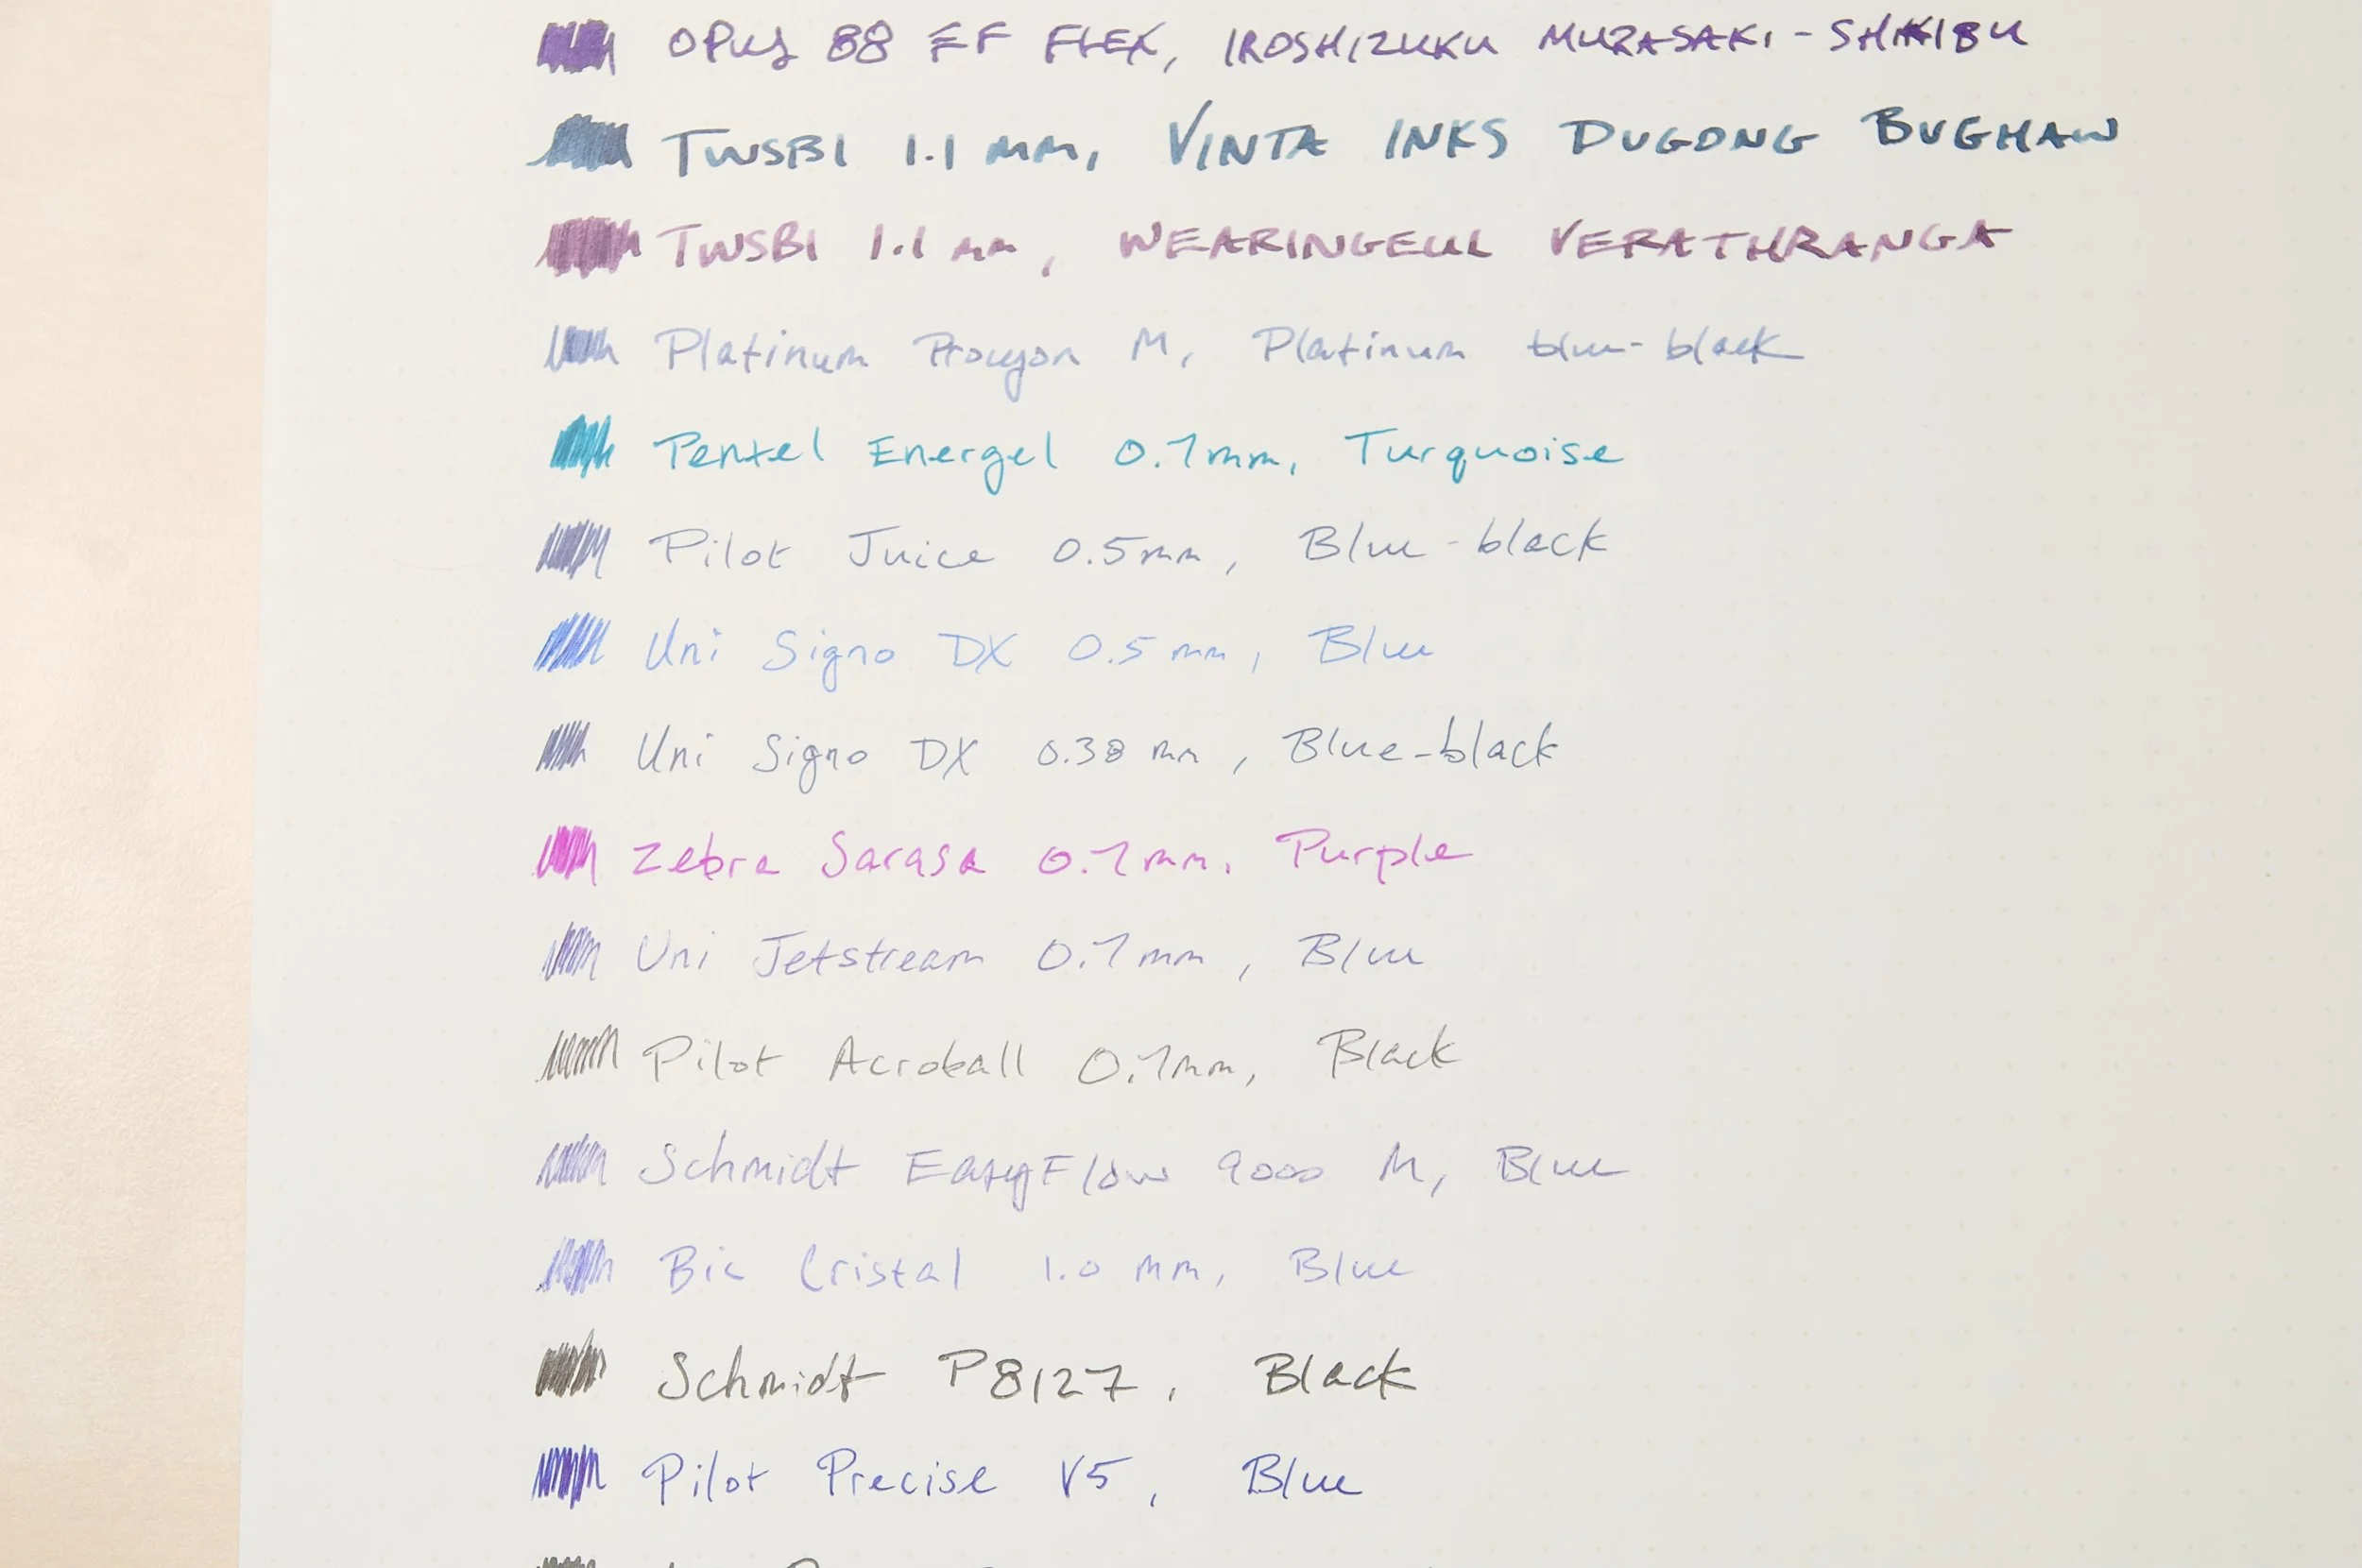 OPUS 88 EF FLEX, IROSHIZUKU MURASAKI-SHIKIBU
TWSBI 1.1 mm, VINTA INKS DUGONG BUGHAW
TWSBI 1.1 mm, WEARINGEUL VERATHRANGA
Platinum Procyon M, Platinum blue-black
Pentel Energel 0.7mm, Turquoise
Pilot Juice 0.5mm, Blue-black
Uni Signo DX 0.5mm, Blue
Uni Signo DX 0.38mm, Blue-black
Zebra Sarasa 0.7mm, Purple
Uni Jetstream 0.7mm, Blue
Pilot Acroball 0.7mm, Black
Schmidt EasyFlow 9000 M, Blue
Bic Cristal 1.0 mm, Blue
Schmidt P8127, Black
Pilot Precise V5, Blue